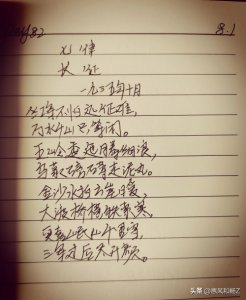 Day82 8.1
七律
长征
一九三五年十月
红军不怕远征难,
万水千山只等闲。
五岭逶迤腾细浪,
乌蒙磅礴走泥丸。
金沙水拍云崖暖,
大渡桥横铁索寒。
更喜岷山千里雪,
三军过后尽开颜。